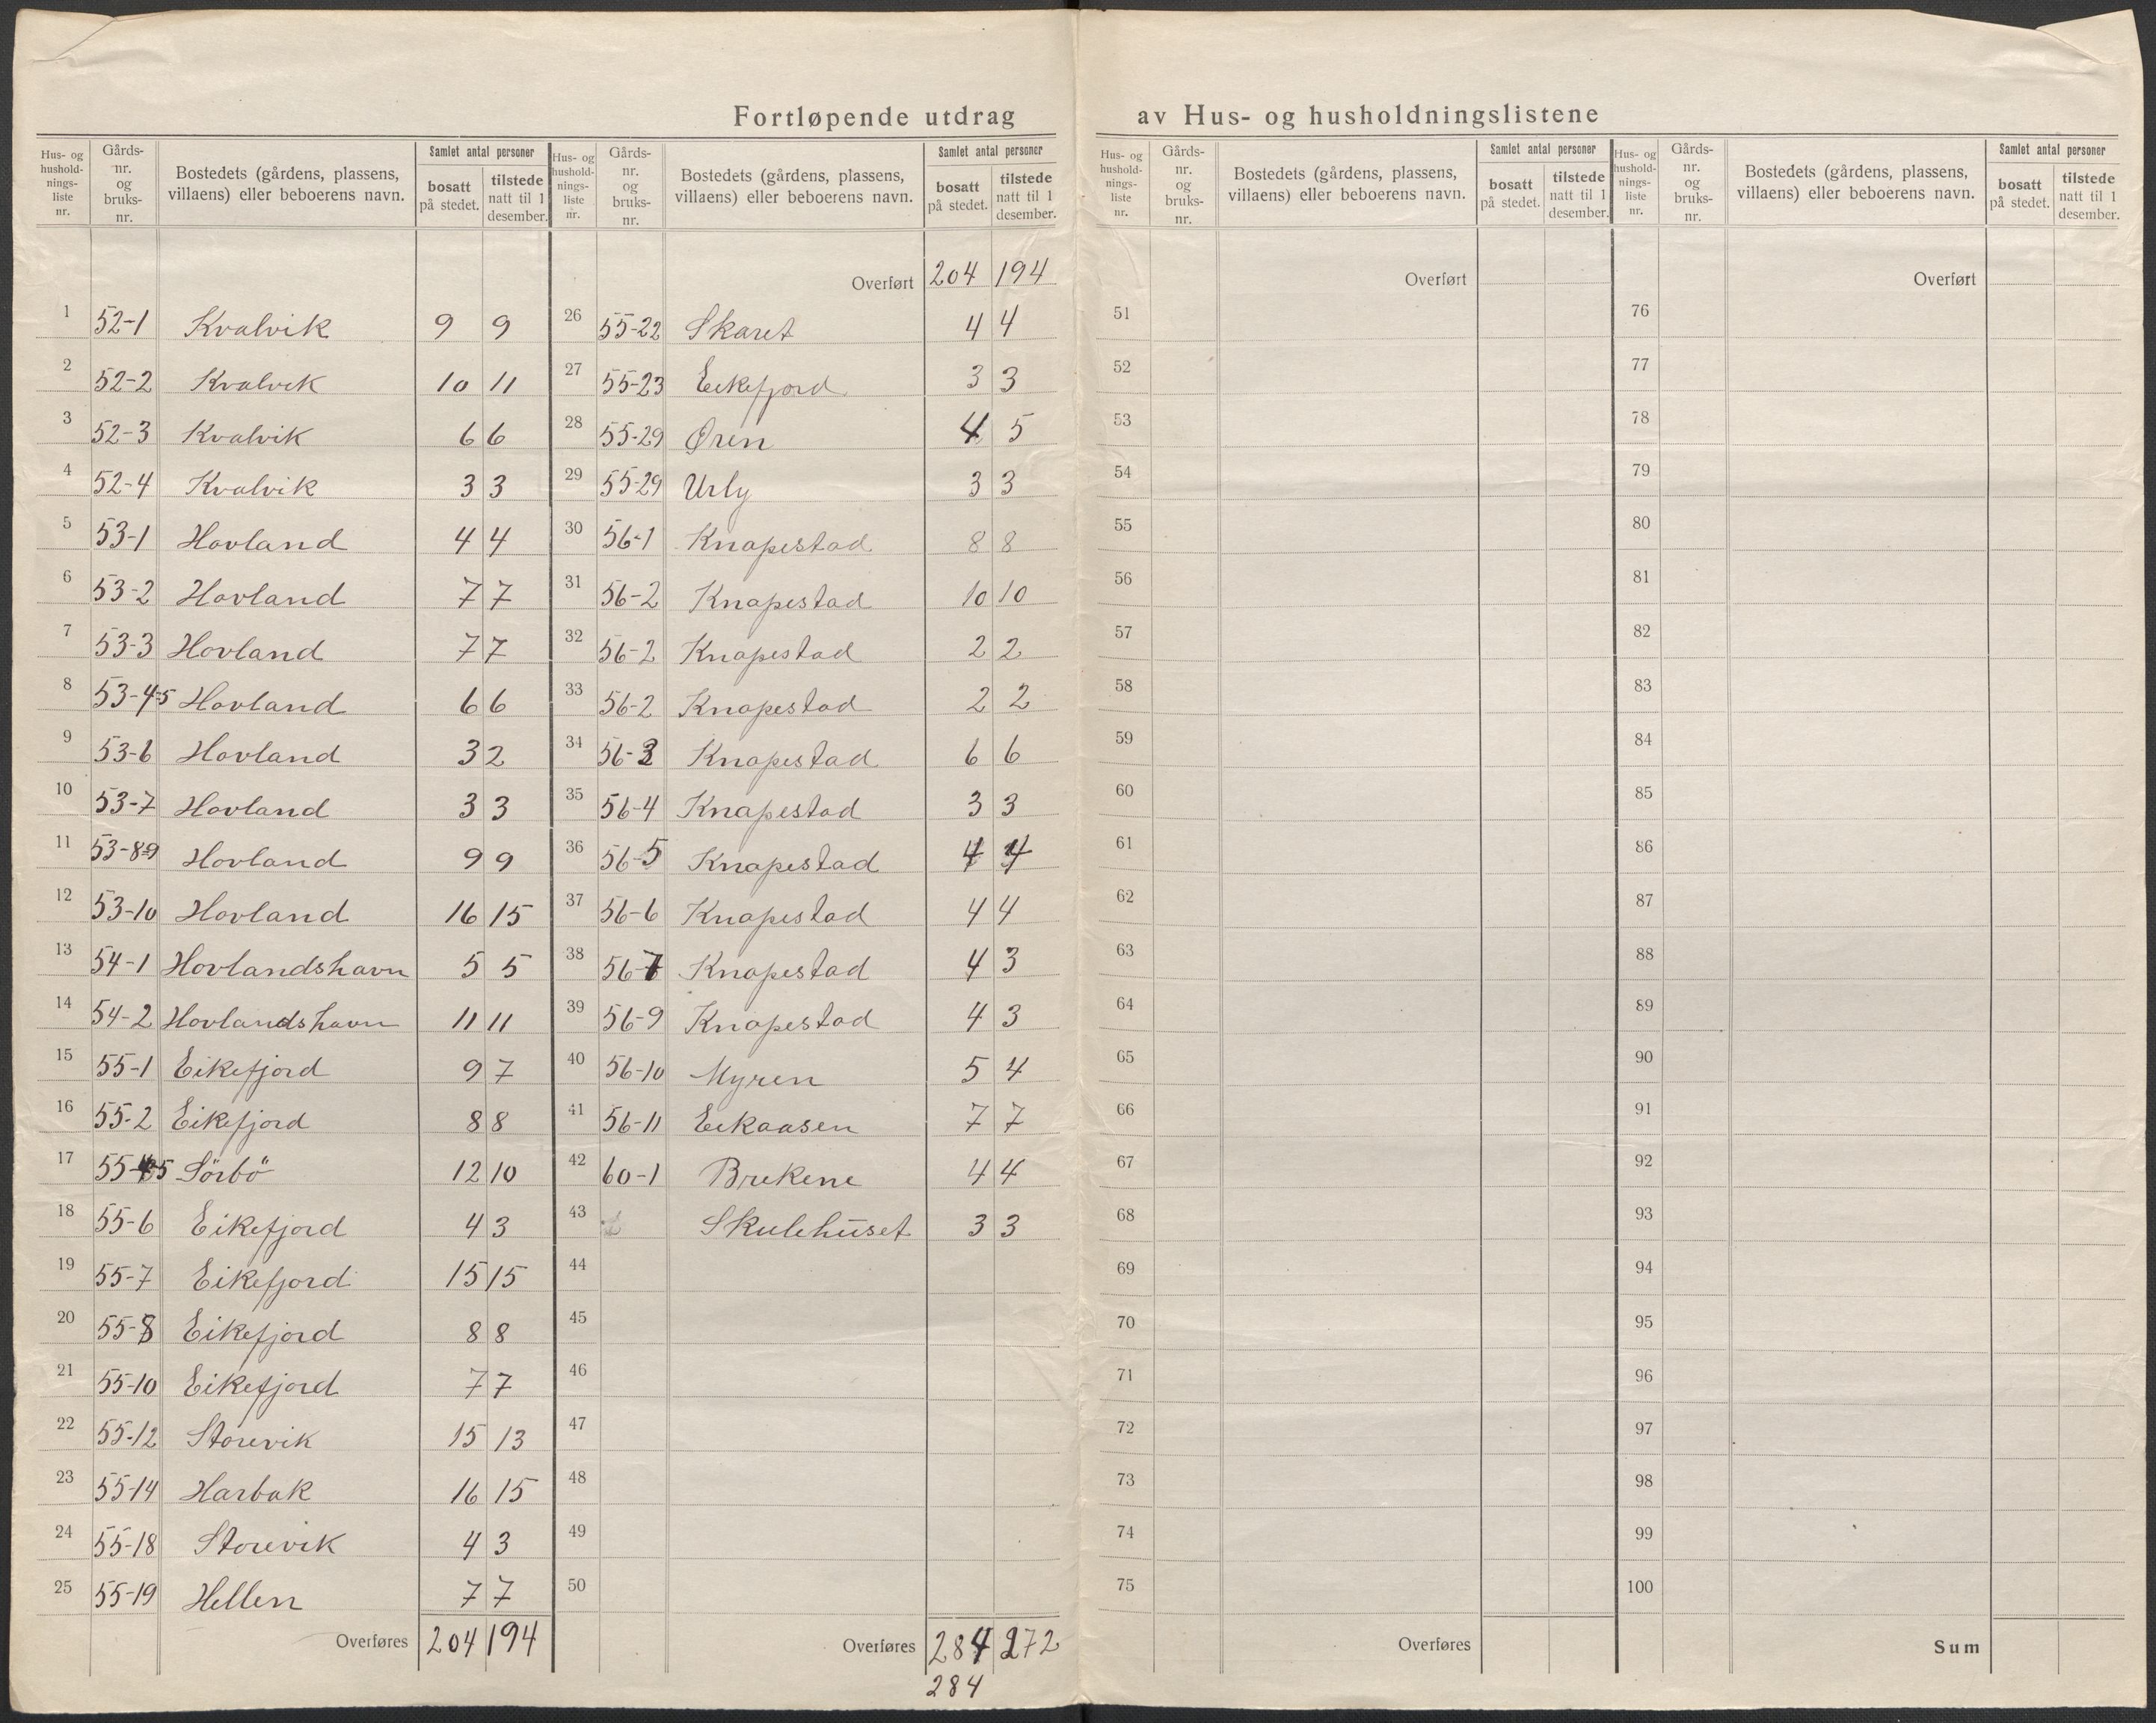 Fortløpende utdrag av Hus- og husholdningslistene
Hus- og hushold-nings-liste nr. | Gårds-nr. og bruks-nr. | Bostedets (gårdens, plassens, villaens) eller beboerens navn. | Samlet antal personer | bosatt på stedet. | tilstede natt til 1 desember.
1 52-1 Kvalvik 9 9
2 52-2 Kvalvik 10 11
3 52-3 Kvalvik 6 6
4 52-4 Kvalvik 3 3
5 53-1 Hovland 4 4
6 53-2 Hovland 7 7
7 53-3 Hovland 7 7
8 53-4-5 Hovland 6 6
9 53-6 Hovland 3 2
10 53-7 Hovland 3 3
11 53-8-9 Hovland 9 9
12 53-10 Hovland 16 15
13 54-1 Hovlandshavn 5 5
14 54-2 Hovlandshavn 11 11
15 55-1 Eikefjord 9 7
16 55-2 Eikefjord 8 8
17 55-4-5 Sörbö 12 10
18 55-6 Eikefjord 4 3
19 55-7 Eikefjord 15 15
20 55-8 Eikefjord 8 8
21 55-10 Eikefjord 7 7
22 55-12 Storevik 15 13
23 55-14 Harbak 16 15
24 55-18 Storevik 4 3
25 55-19 Hellen 7 7
Overføres 204 194
Hus- og hushold-nings-liste nr. | Gårds-nr. og bruks-nr. | Bostedets (gårdens, plassens, villaens) eller beboerens navn. | Samlet antal personer | bosatt på stedet. | tilstede natt til 1 desember.
Overført 204 194
26 55-22 Skaret 4 4
27 55-23 Eikefjord 3 3
28 55-29 Øren 4 5
29 55-29 Urly 3 3
30 56-1 Knapestad 8 8
31 56-2 Knapestad 10 10
32 56-2 Knapestad 2 2
33 56-2 Knapestad 2 2
34 56-3 Knapestad 6 6
35 56-4 Knapestad 3 3
36 56-5 Knapestad 4 4
37 56-6 Knapestad 4 4
38 56-7 Knapestad 4 3
39 56-9 Knapestad 4 3
40 56-10 Myren 5 4
41 56-11 Eikaasen 7 7
42 60-1 Brekene 4 4
43 Skulehuset 3 3
44
45
46
47
48
49
50
Overføres 284 272
284
Hus- og hushold-nings-liste nr. | Gårds-nr. og bruks-nr. | Bostedets (gårdens, plassens, villaens) eller beboerens navn. | Samlet antal personer | bosatt på stedet. | tilstede natt til 1 desember.
Overført
51
52
53
54
55
56
57
58
59
60
61
62
63
64
65
66
67
68
69
70
71
72
73
74
75
Overføres
Hus- og hushold-nings-liste nr. | Gårds-nr. og bruks-nr. | Bostedets (gårdens, plassens, villaens) eller beboerens navn. | Samlet antal personer | bosatt på stedet. | tilstede natt til 1 desember.
Overført
76
77
78
79
80
81
82
83
84
85
86
87
88
89
90
91
92
93
94
95
96
97
98
99
100
Sum